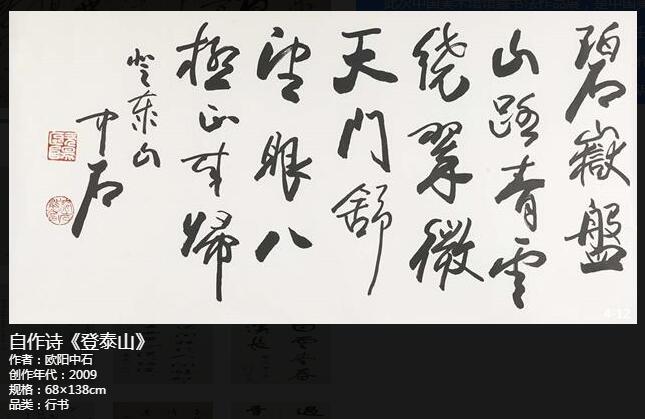 碧嶽盤
山路青雲
绕翠微
天門舒
望眼八
極正来歸
登泰山
中石
4-12
自作诗《登泰山》
作者：欧阳中石
创作年代：2009
规格：68×138cm
品类：行书